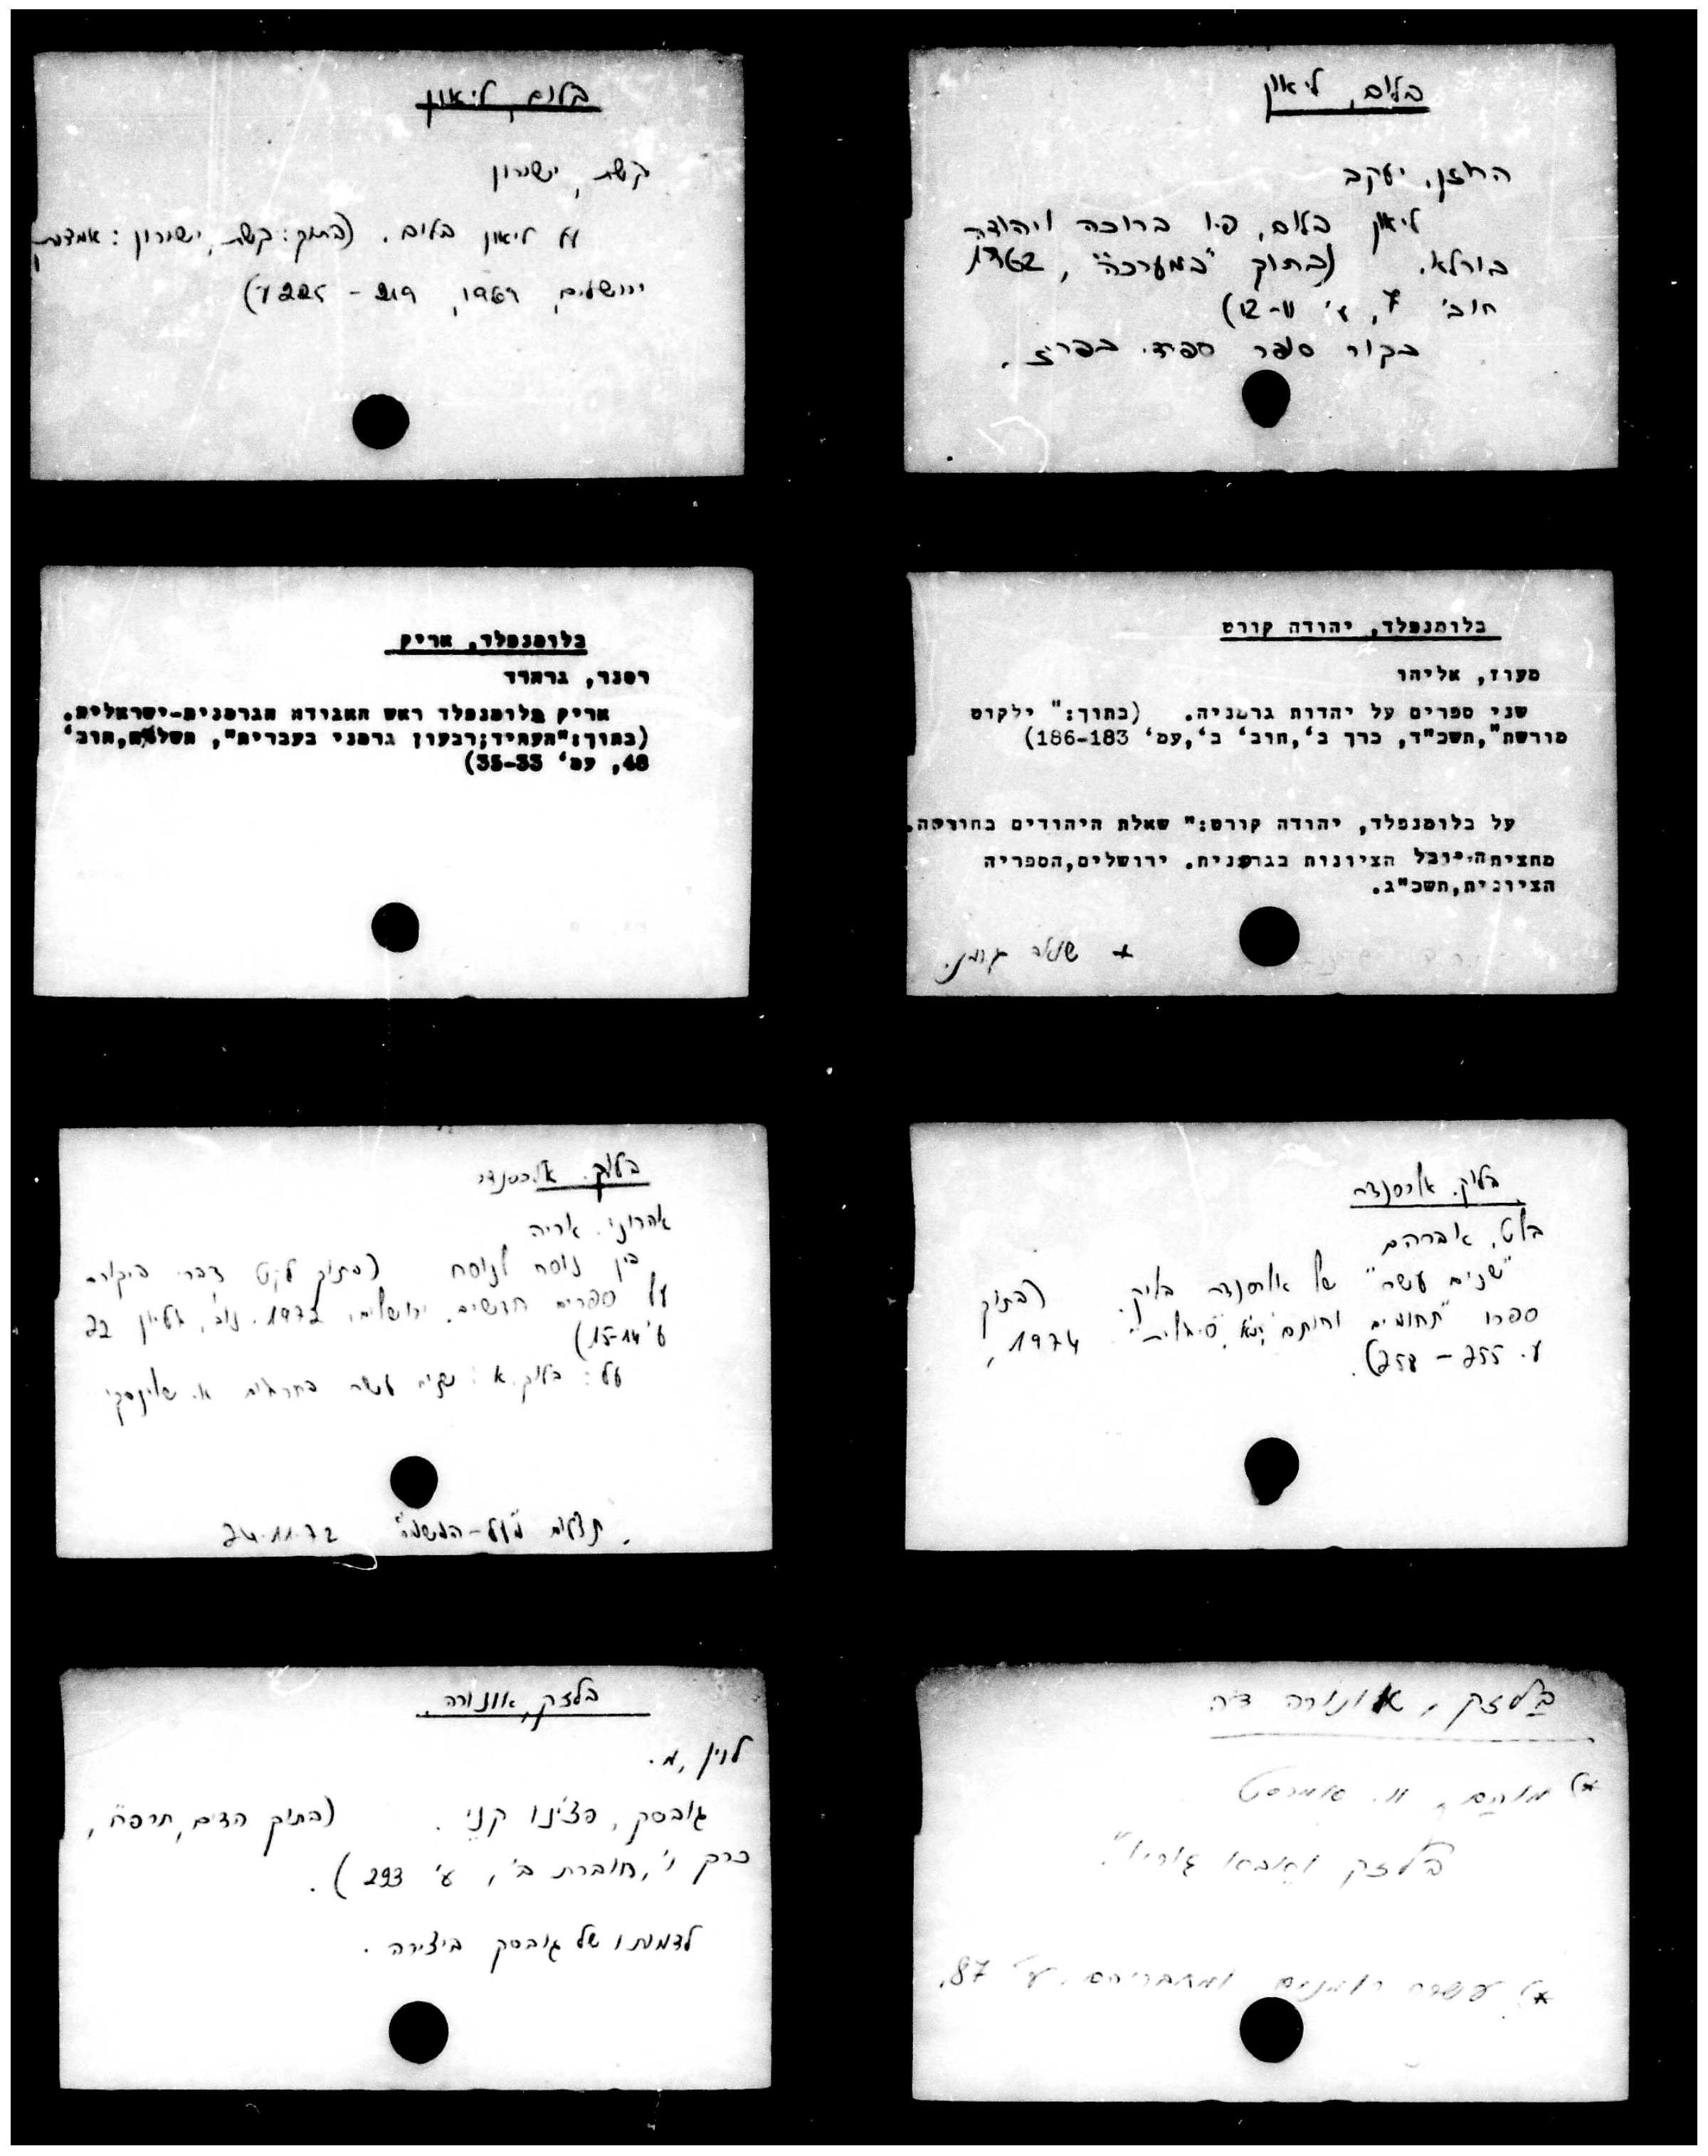 בלום, ליאון
החזן, יעקב
ליאון בלום, פיו ברוכה ויהודה
בורלא. (בתוך "במערכה", 1962
חוב' 7, ע' 11-12)
בקור סופר ספרדי בפריז.
בלום, ליאון
קשת, ישורון
ליאון בלום. (בתוך: קשת, ישורון:
ירושלים, 1969, 219 - 225)
בלומנפלד, יהודה קורט
מעוז, אליהו
שני ספרים על יהדות גרמניה. (בתוך:" ילקוט
מורשת",תשכ"ד, כרך ב',חוב' ב',עמ' 186-183)
על בלומנפלד, יהודה קורט:" שאלת היהודים כחוויה.
מחצית היובל הציונות בגרמנית. ירושלים,הספריה
הציונית,תשכ"ג.
בלומנפלד, אריק
רסנר, גרהרד
אריק בלומנפלד ראש האגודה הגרמנית-ישראלית.
(בתוך:"העתיד;רבעון גרמני בעברית", תשל"ח,חוב'
48, עמ' 35-33)
בלוק. אלכסנדר
בלט, אברהם
"שנים עשר" של אלכסנדר בלוק. (בתוך
ספרו "תחומים וחותם" 1974,
ע. 255 - 258).
בלוק. אלכסנדר
אהרוני. אריה
בין נוסח לנוסח (בתוך לקט דברי ביקורת
על ספרים חדשים. ירושלים, 1972. נוב', גליון 22
ע' 14-15)
על: בלוק.א: שנים עשר בתרגום א. שלונסקי
"על-המשמר" 24.11.72
בלזק, אונורה דה
מוהם, וו. סומרסט
בלזק ו"אבא גוריו".
עשרה רומנים ומחבריהם. ע' 87.
בלזק, אונורה.
לוין, מ.
גובסק, פצ'ינו קני. (בתוך הדים, תרפ"ח,
כרך ו', חוברת ב', ע' 293).
לדמותו של גובסק ביצירה.